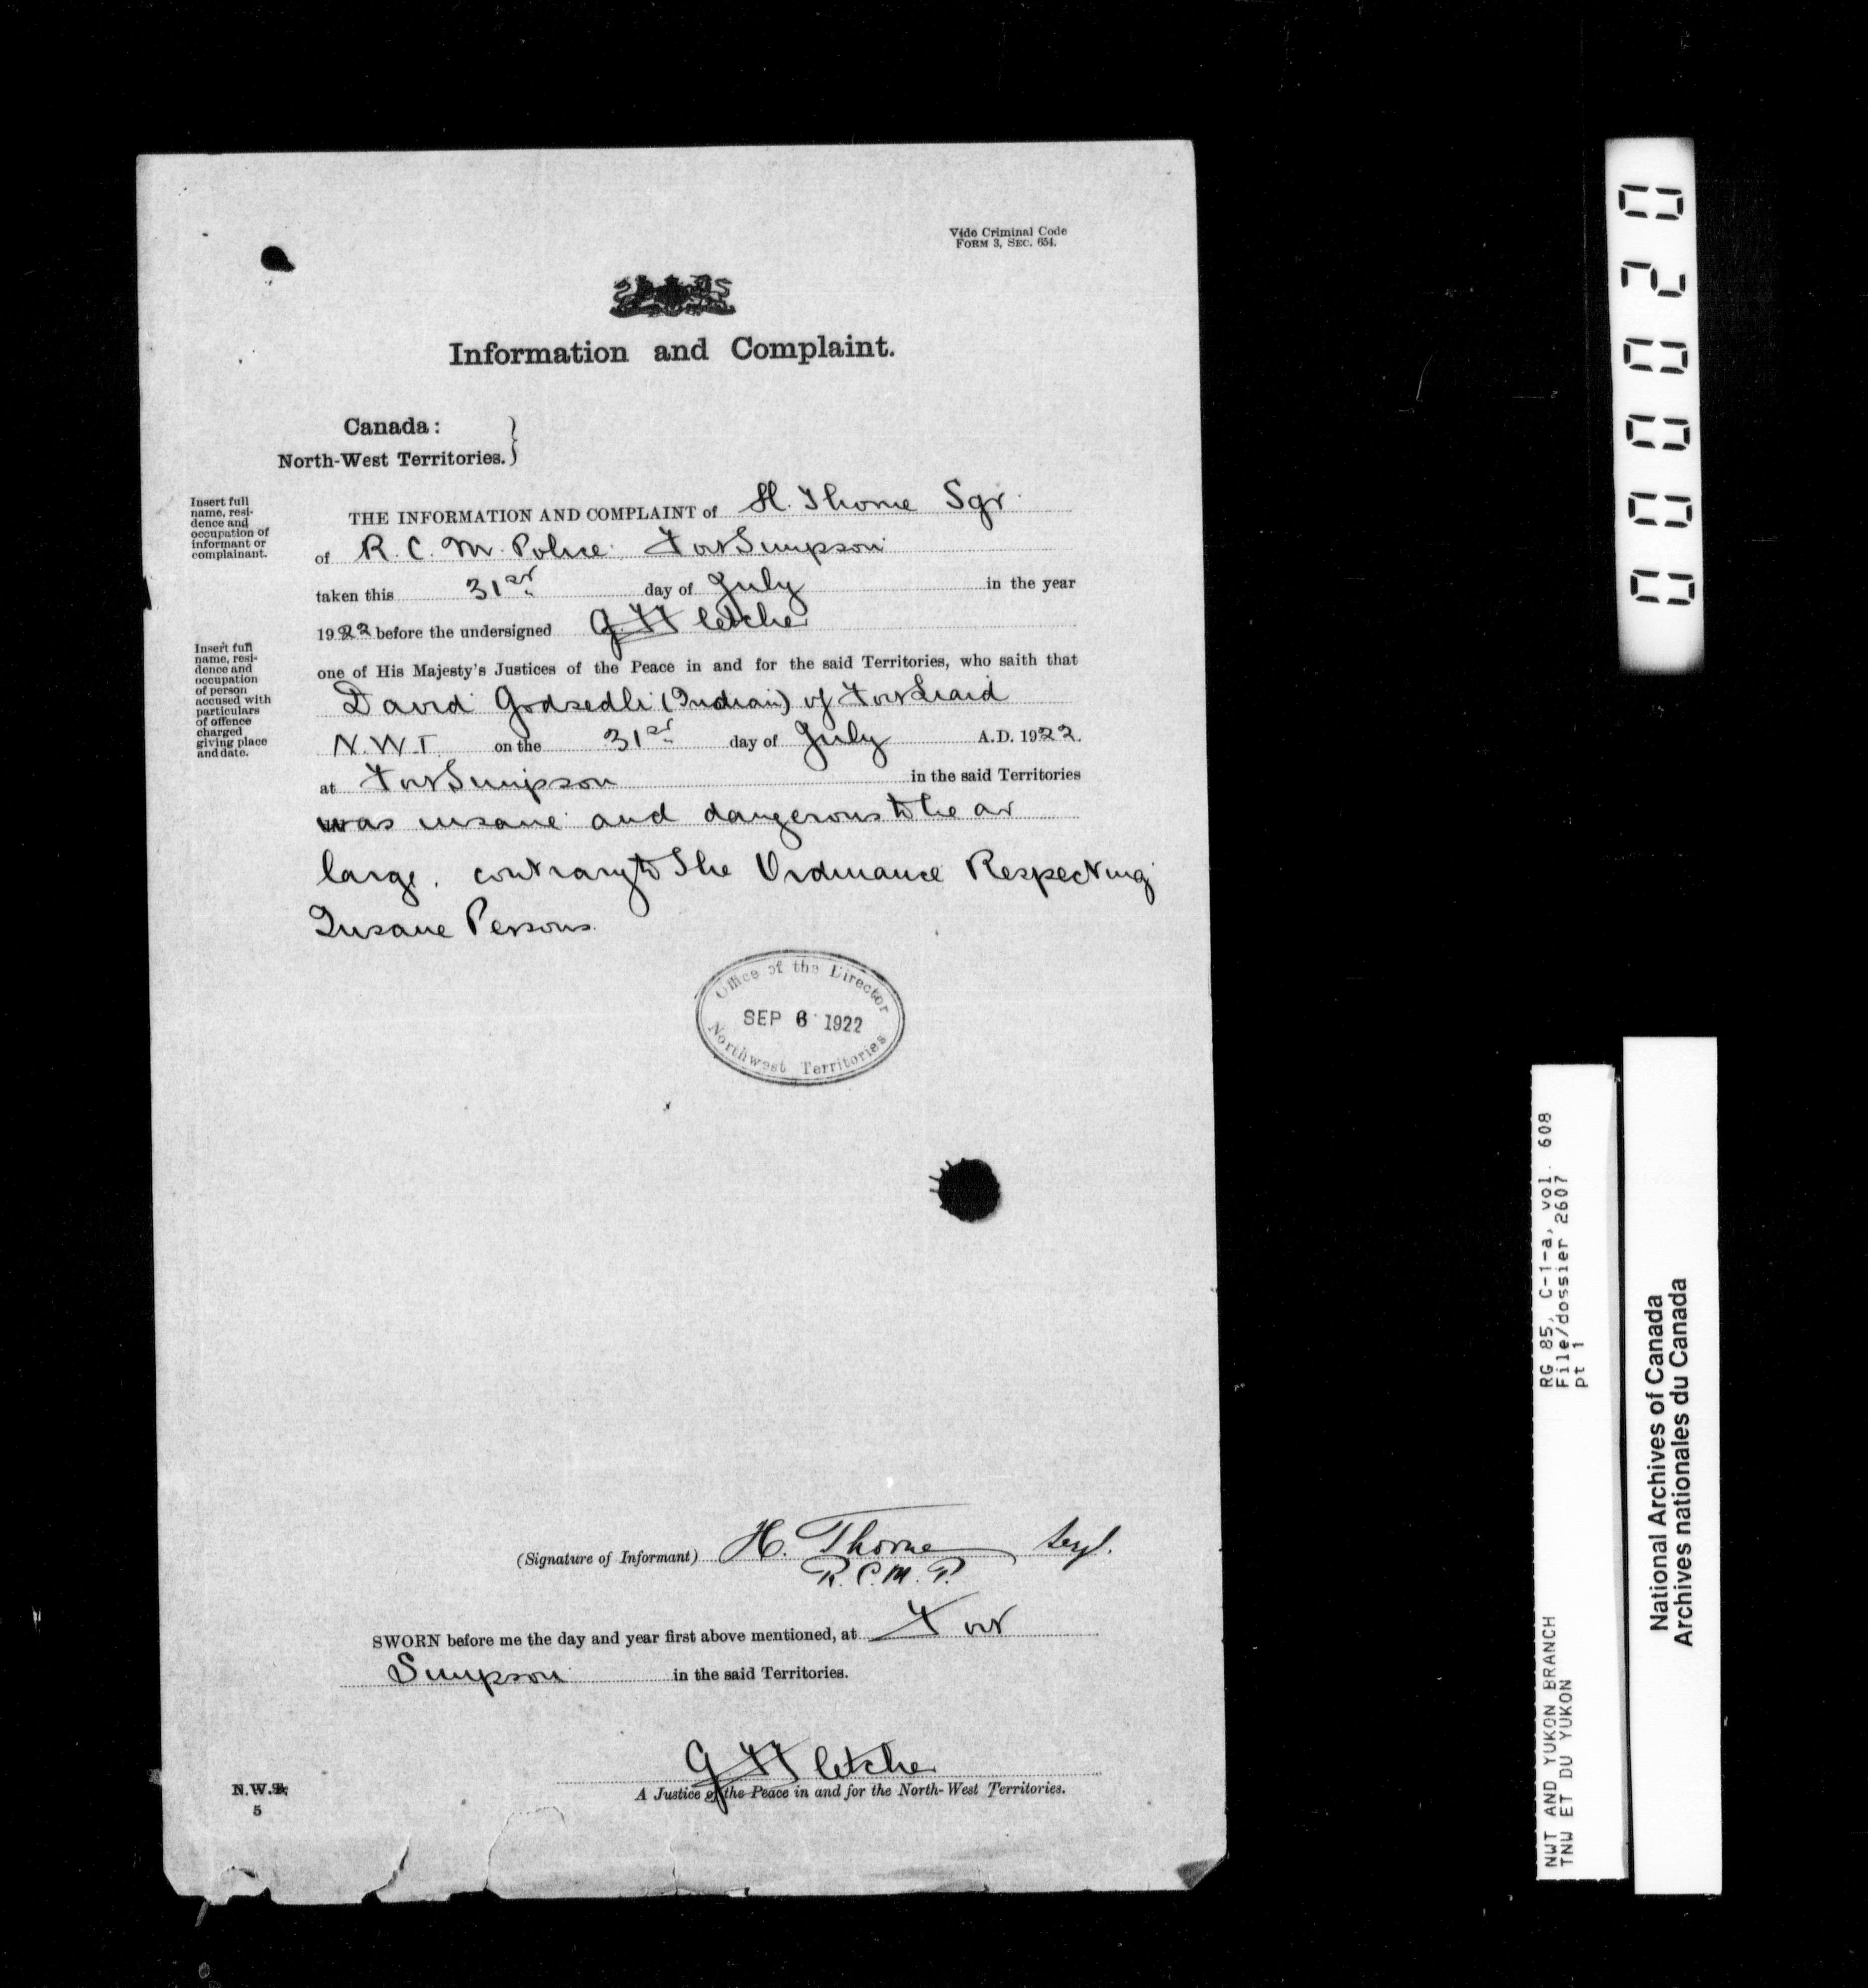 Vide Criminal Code
FORM 3, SEC. 654.
Information and Complaint.
Canada :
North-West Territories.
Insert full
name, resi-
dence and
occupation of
informant or
complainant.
THE INFORMATION AND COMPLAINT of H. Thorne Sgt
of R. C. M. Police. Fort Simpson
taken this 31st day of July in the year
1922 before the undersigned G. Fletcher
Insert full
name, resi-
dence and
occupation
of person
accused with
particulars
of offence
charged
giving place
and date.
one of His Majesty's Justices of the Peace in and for the said Territories, who saith that
David Godsedli (Indian) of Fort Liard
N.W.T. on the 31st day of July A.D. 1922.
at Fort Simpson in the said Territories
was insane and dangerous to be at
large. contrary to The Ordinance Respecting
Insane Persons.
Office of the Director
SEP 6 1922
Northwest Territories
(Signature of Informant) H. Thorne Sergt.
R.C.M.P.
SWORN before me the day and year first above mentioned, at Fort
Simpson in the said Territories.
G Fletcher
A Justice of the Peace in and for the North-West Territories.
N.W.T.
5
000020
RG 85, C-1-a, vol. 608
File/dossier 2607
pt 1
NWT AND YUKON BRANCH
TNW ET DU YUKON
National Archives of Canada
Archives nationales du Canada